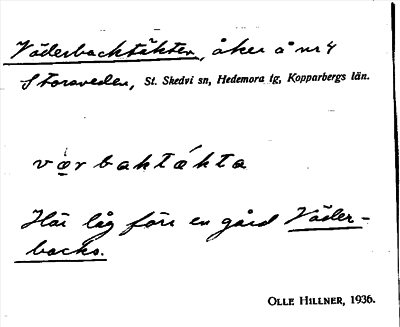 Väderbacktäkten, åker å nr 4
Storsveden, St. Skedvi sn, Hedemora tg, Kopparbergs län.
værbaktákta
Här låg förr en gård Väder-
backa.
OLLE HILLNER, 1936.